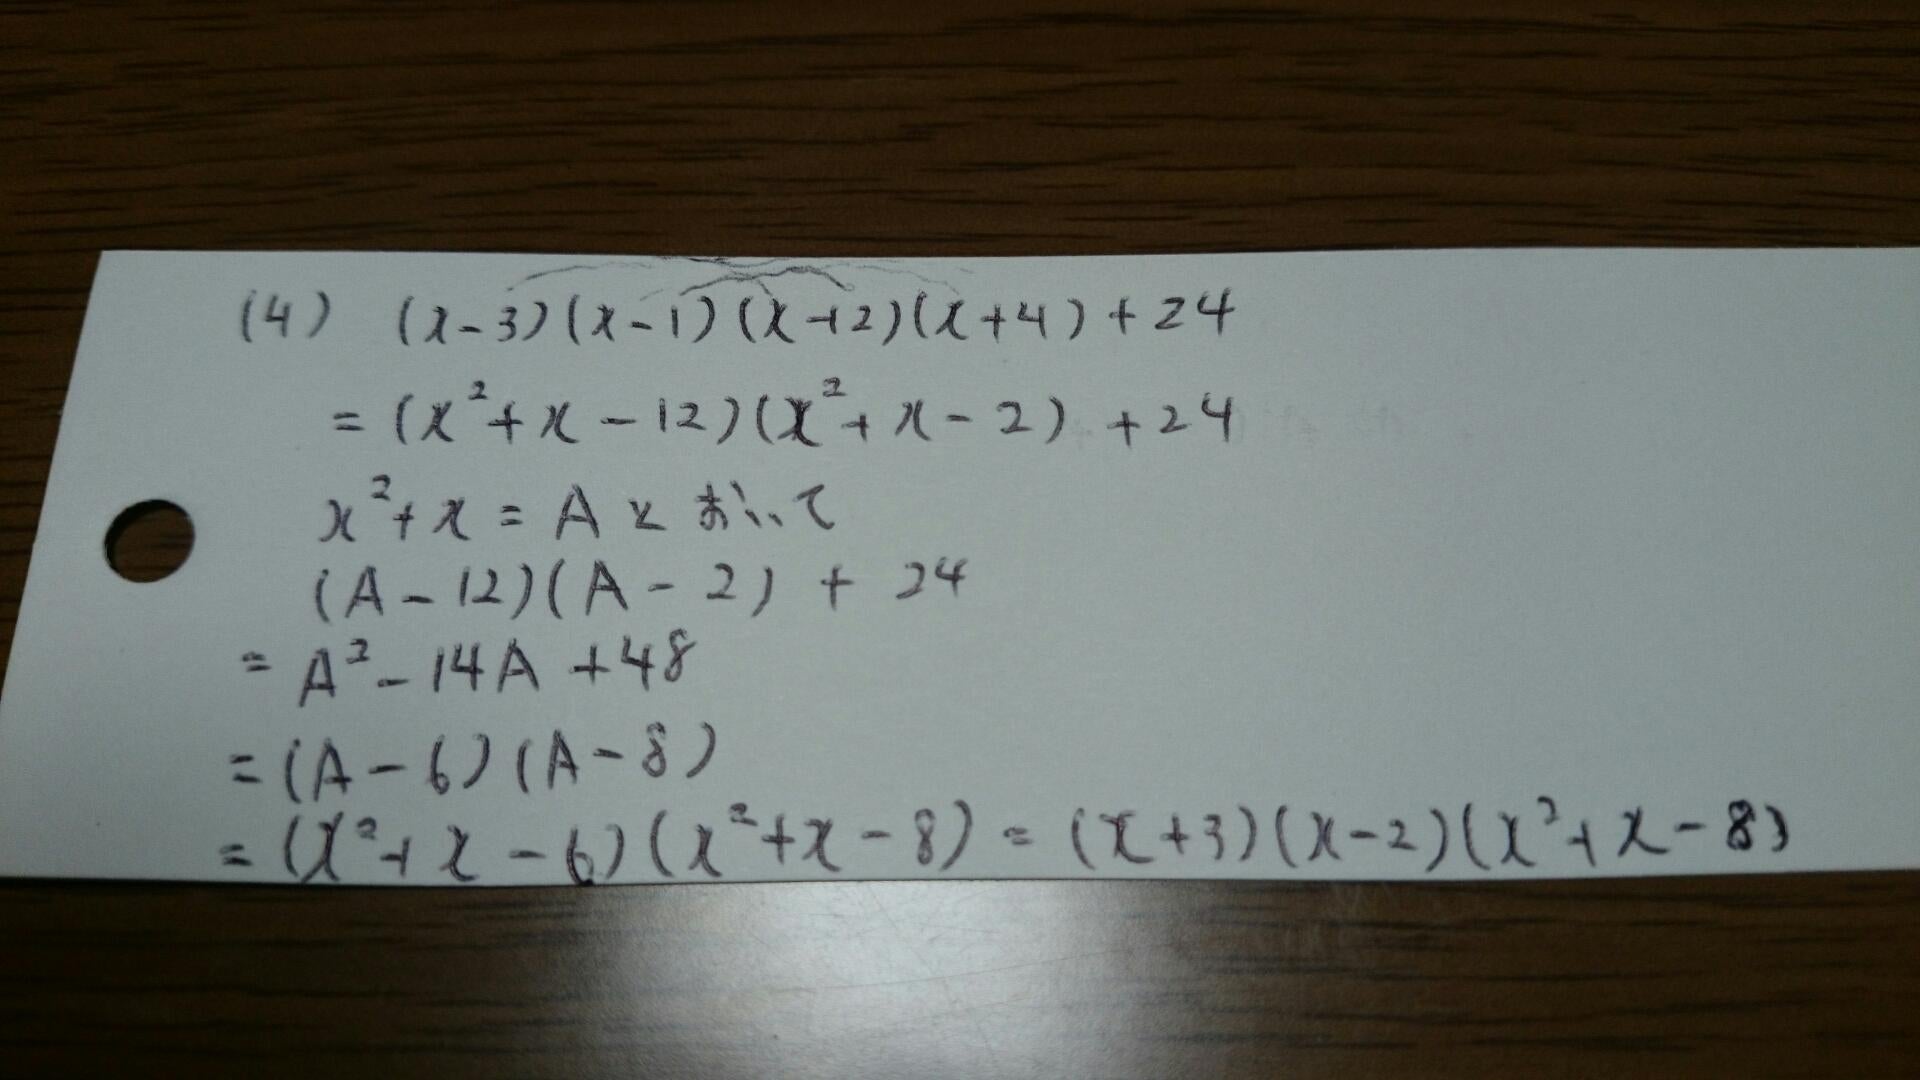 (4) (x-3)(x-1)(x+2)(x+4)+24
= (x²+x-12)(x²+x-2)+24
x²+x=Aとおいて
(A-12)(A-2)+24
= A²-14A+48
=(A-6)(A-8)
=(x²+x-6)(x²+x-8)=(x+3)(x-2)(x²+x-8)